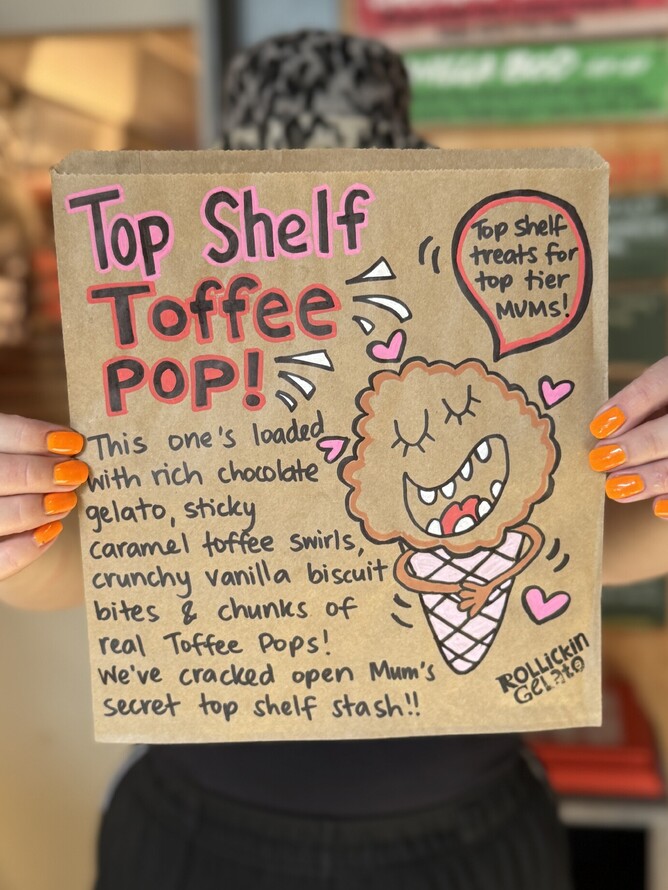 Top Shelf
Toffee
POP!
Top shelf
treats for
top tier
MUMS!
This one's loaded
with rich chocolate
gelato, sticky
caramel toffee swirls,
crunchy vanilla biscuit
bites & chunks of
real Toffee Pops!
We've cracked open Mum's
secret top shelf stash!!
ROLLiCKiN
GeLaTo